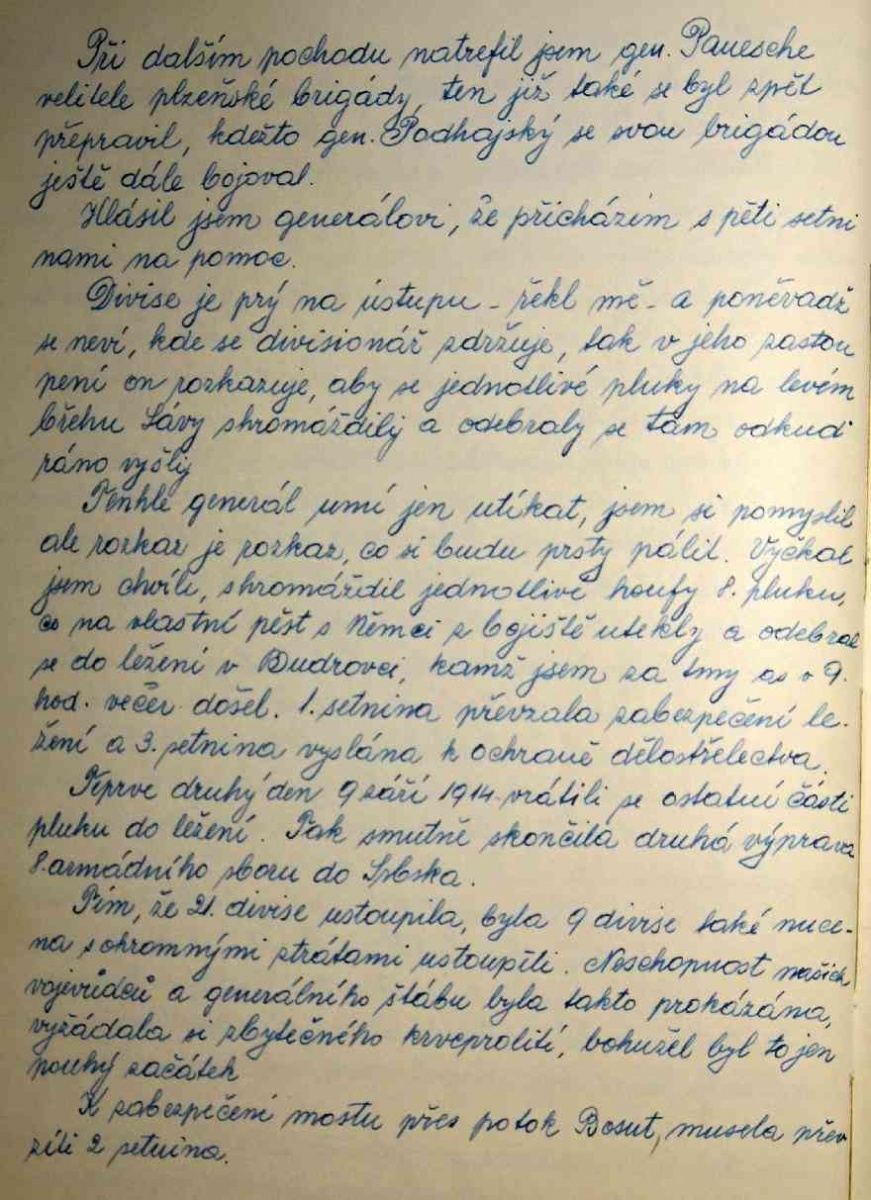 Při dalším pochodu natrefil jsem gen. Panesche
velitele plzeňské brigády, ten již také se byl zpět
přepravil, kdežto gen. Podhajský se svou brigádou
ještě dále bojoval.
Hlásil jsem generálovi, že přicházím s pěti setni
nami na pomoc.
Divise je prý na ústupu - řekl mě - a poněvadž
se neví, kde se divisionář zdržuje, tak v jeho zastou
pení on rozkazuje, aby se jednotlivé pluky na levém
břehu Sávy shromáždily a odebraly se tam odkud
ráno vyšly
Tenhle generál umí jen utíkat, jsem si pomyslil
ale rozkaz je rozkaz, co si budu prsty pálit. Vyčkal
jsem chvíli, shromáždil jednotlivé houfy 8. pluku,
co na vlastní pěst s Němci z bojiště utekly a odebral
se do ležení v Budrovci, kamž jsem za tmy as v 9.
hod. večer došel. 1. setnina převzala zabezpečení le-
žení a 3. setnina vyslána k ochraně dělostřelectva.
Teprve druhý den 9 září 1914 vrátili se ostatní části
pluku do ležení. Tak smutně skončila druhá výprava
8. armádního sboru do Srbska.
Tím, že 21. divise ustoupila, byla 9 divise také nuce-
na s ohrommými ztrátami ustoupiti. Neschopnost našich
vojevůdců a generálního štábu byla takto prokázána,
vyžádala si zbytečného krveprolití, bohužel byl to jen
pouhý začátek
K zabezpečení mostu přes potok Bosut, musela přev
zíti 2 setnina.